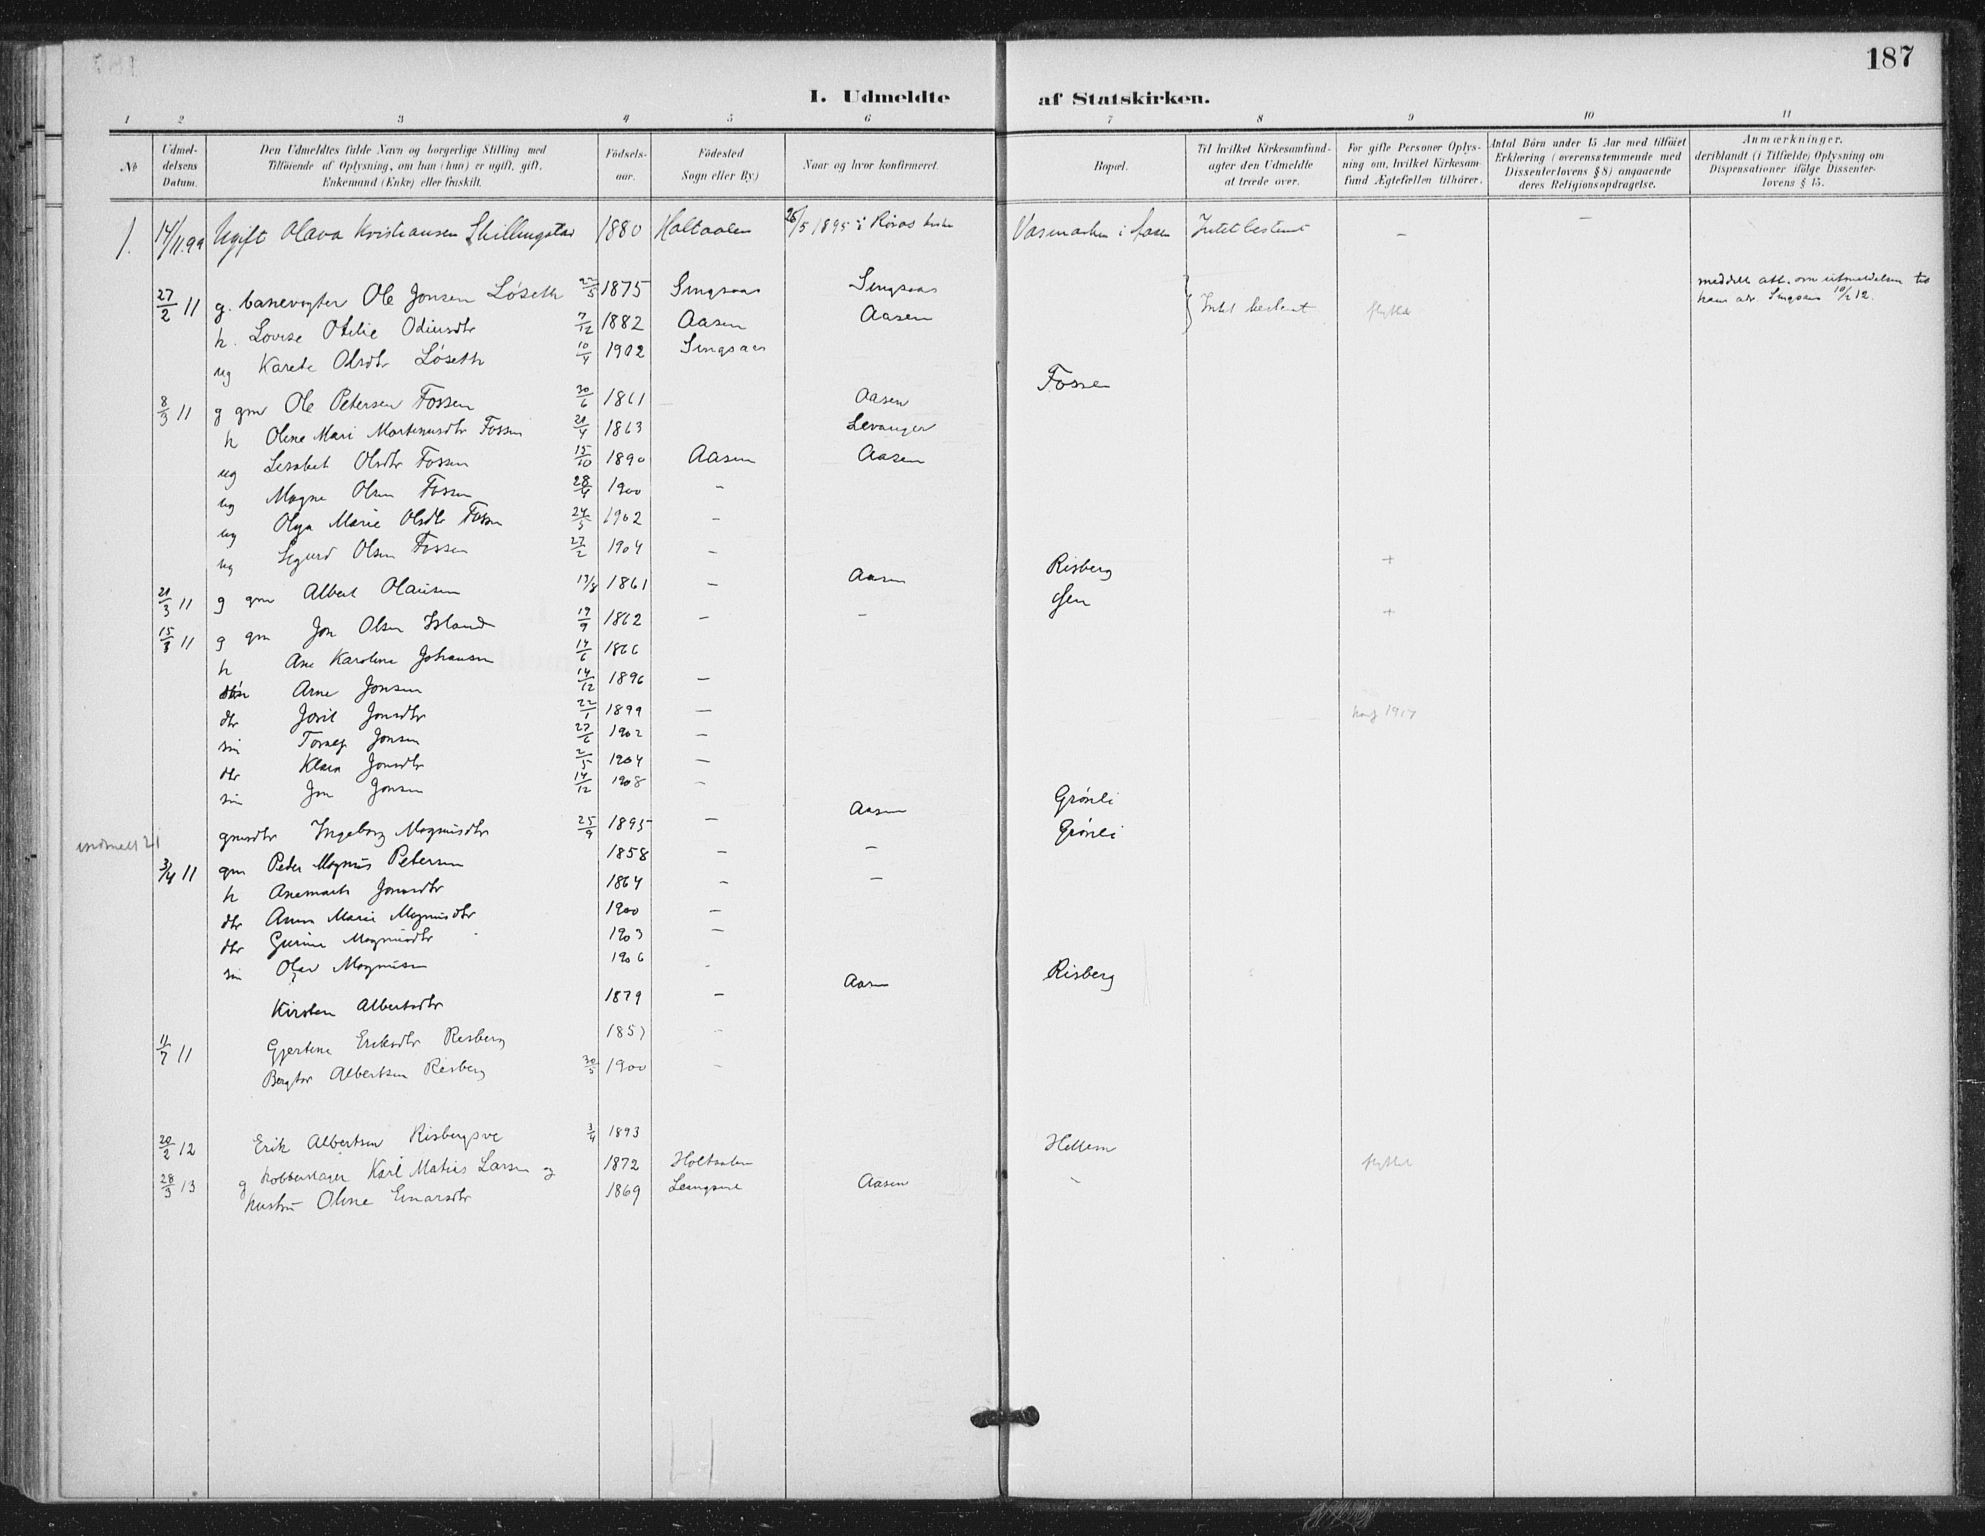 187
I. Udmeldte af Statskirken.
1 2 3 4 5 6 7 8 9 10 11
№
Udmel-
delsens
Datum.
Den Udmeldtes fulde Navn og borgerlige Stilling med
Tilföiende af Oplysning, om han (hun) er ugift, gift,
Enkemand (Enke) eller fraskilt.
Födsels-
aar.
Födested
Sogn eller By)
Naar og hvor konfirmeret.
Bopæl.
Til hvilket Kirkesamfund-
agter den Udmeldte
at træde over.
For gifte Personer Oplys-
ning om, hvilket Kirkesam-
fund Ægtefællen tilhörer.
Antal Börn under 15 Aar med tilföiet
Erklæring (overensstemmende med
Dissenterlovens § 8) angaaende
deres Religionsopdragelse.
Anmærkninger,
deriblandt (i Tilfælde) Oplysning om
Dispensationer ifölge Dissenter-
lovens § 15.
1. 14/11.99 Ugift Olava Kristiansen Skillingstad 1880 Holtaalen 26/5 1895 i Röros kirke Vasmarken i Aasen Intet bestemt – –
27/2 11 g. banevogter Ole Jonsen Löseth 22/5 1875 Singsaas Singsaas Intet bestemt flyttet meddelt att. om utmeldelsen til
ham adr. Singsaas 10/2 12.
h. Lovise Otilie Odinsdtr 7/12 1882 Aasen Aasen
ug Karete Olsdtr Löseth 10/4 1902 Singsaas
8/3 11 g gm Ole Petersen Fossen 30/6 1861 Aasen Fossen
h Oline Mari Martinusdtr Fossen 21/4 1863 Levanger
ug Lisabet Olsdtr Fossen 15/10 1890 Aasen Aasen
ug Magne Olsen Fossen 28/4 1900 –
ug Olga Marie Olsdtr Fossen 24/5 1902 –
ug Sigurd Olsen Fossen 27/2 1904 –
21/3 11 g gm Albert Olausen 13/8 1861 – Aasen Risberg +
15/3 11 g gm Jon Olsen Island 19/9 1862 – – +
h Ane Karoline Johansen 14/6 1866
Arne Jonsen 14/12 1896 –
dtr Josil Jonsdtr 22/1 1899 – konf 1917
sön Torleif Jonsen 27/6 1902 –
dtr Klara Jonsdtr 2/5 1904 –
sön Jon Jonsen 14/12 1908 –
gmsdtr Ingeborg Magnusdtr 25/9 1895 – Aasen Grönli
indmeldt 21
3/4 11 gm Peder Magnus Petersen 1858 – – Grönli
h Anemarta Jonasdtr 1864 – –
dtr Anna Marie Magnusdtr 1900 –
dtr Gurine Magnusdtr 1903 –
sön Olav Magnusen 1906 –
Kirsten Albertsdtr 1879 – Aasen Risberg
11/7 11 Gjertine Eriksdtr Risberg 1857 –
Bergtor Albertsen Risberg 30/5 1900 –
20/2 12 Erik Albertsen Risbergsve 3/4 1893 Hellem
28/3 13 g kobberslager Karl Matius Larsen og 1872 Holtaalen – flyttet
hustru Oline Einarsdtr 1869 Aasen